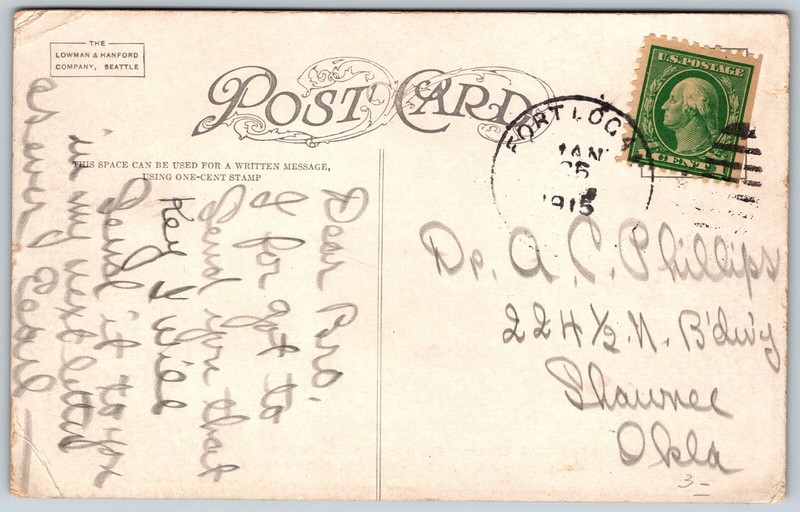 THE
LOWMAN & HANFORD
COMPANY, SEATTLE
POST CARD
THIS SPACE CAN BE USED FOR A WRITTEN MESSAGE,
USING ONE-CENT STAMP
U.S. POSTAGE
1 CENT 1
FORT LOGA
JAN
26
1915
Dear Bro.
I for got to
Send you that
Key I will
Send it to you
in my next letter
Dr. A. C. Phillips
224 ½ N. B'dw'y
Shawnee
Okla
3-